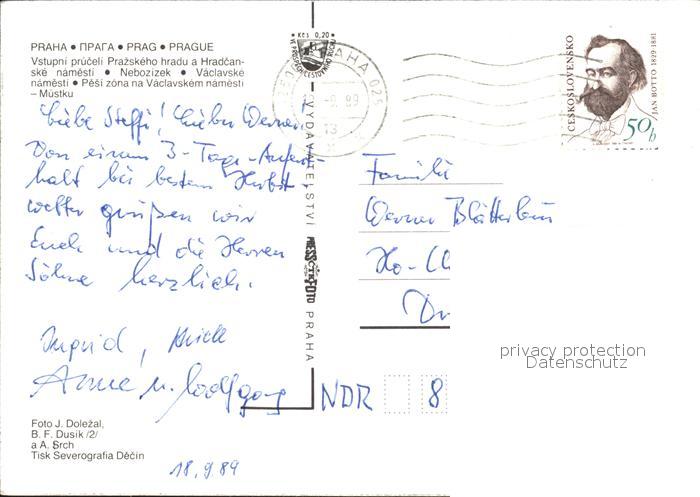 PRAHA • ПРАГА • PRAG • PRAGUE
Vstupní průčelí Pražského hradu a Hradčan-
ské náměstí • Nebozízek • Václavské
náměstí • Pěší zóna na Václavském náměstí
– Můstku
Liebe Steffi, lieber Werner!
Von einem 3-Tage-Aufent-
halt bei bestem Herbst-
wetter grüßen wir
Euch und die Herren
Söhne herzlich.
Ingrid,
Anne u. Wolfgang
Foto J. Doležal,
B. F. Dusík /2/
a A. Srch
Tisk Severografia Děčín
18.9.89
Kčs 0,20
VYDAVATELSTVÍ
PRESSFOTO
PRAHA
PRAHA 025
89
13
ČESKOSLOVENSKO
JAN BOTTO 1829-1881
50h
Familie
Werner
Ho-Ch
Dr
NDR 8
privacy protection
Datenschutz